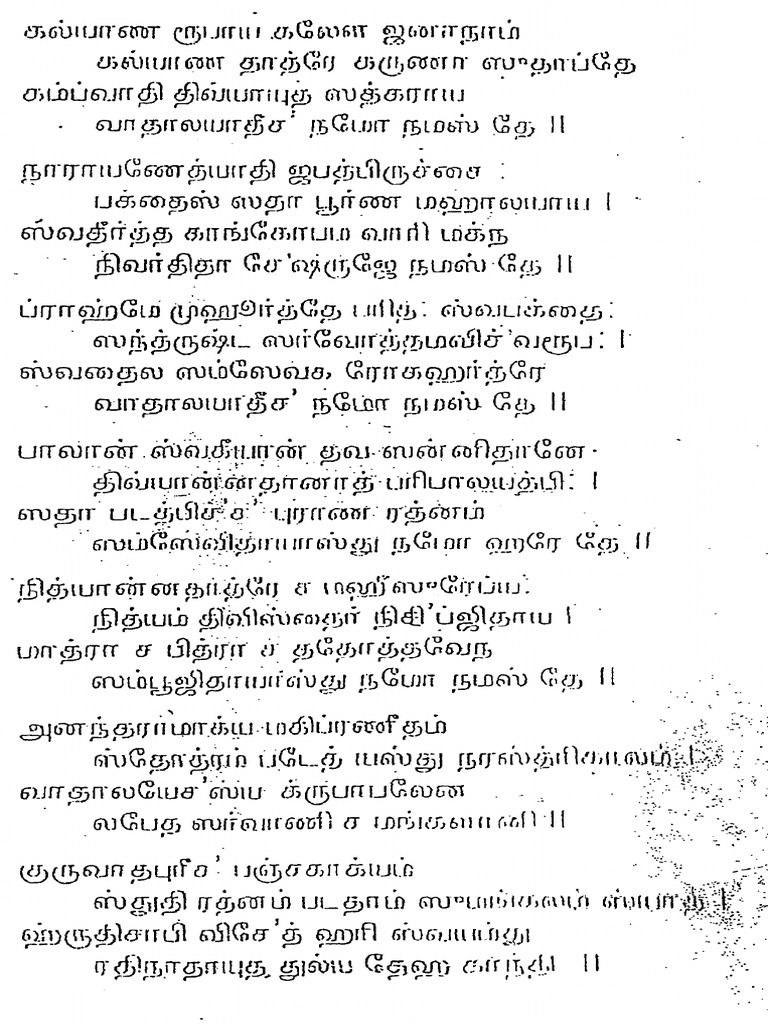 கல்யாண ரூபாய கலௌ ஜனானாம்
கல்யாண தாத்ரே கருணா ஸுதாப்தே
கம்ப்வாதி திவ்யாயுத ஸத்கராய
வாதாலயாதீச' நமோ நமஸ் தே ||
நாராயணேத்யாதி ஜபத்பிருச்சை :
பக்தைஸ் ஸதா பூர்ண மஹாலயாய |
ஸ்வதீர்த்த காங்கோபம வாரி மக்ந
நிவர்திதா சே'ஷருஜே நமஸ் தே ||
ப்ராஹ்மே முஹூர்த்தே பரித: ஸ்வபக்தை:
ஸந்த்ருஷ்ட ஸர்வோத்தமவிச்'வரூப: |
ஸ்வதைல ஸம்ஸேவக ரோகஹர்த்ரே
வாதாலயாதீச' நமோ நமஸ் தே ||
பாலான் ஸ்வகீயான் தவ ஸன்னிதானே
திவ்யான்னதானாத் பரிபாலயத்பி: |
ஸதா படத்பிச்'ச' புராண ரத்னம்
ஸம்ஸேவிதாயாஸ்து நமோ ஹரே தே ||
நித்யான்னதாத்ரே ச மஹீஸுரேப்ய:
நித்யம் திவிஸ்தைர் நிசி'ப்ஜிதாய |
மாத்ரா ச பித்ரா ச ததோத்தவேந
ஸம்பூஜிதாயாஸ்து நமோ நமஸ் தே ||
அனந்தராமாக்ய மகிப்ரணீதம்
ஸ்தோத்ரம் படேத் யஸ்து நரஸ்த்ரிகாலம் |
வாதாலயேச'ஸ்ய க்ருபாபலேன
லபேத ஸர்வாணி ச மங்களானி ||
குருவாதபுரீச' பஞ்சகாக்யம்
ஸ்துதி ரத்னம் படதாம் ஸுமங்கலம் ஸ்யாத் |
ஹ்ருதிசாபி விசே'த் ஹரி ஸ்வயம்து
ரதிநாதாயுத துல்ய தேஹ காந்தி ||